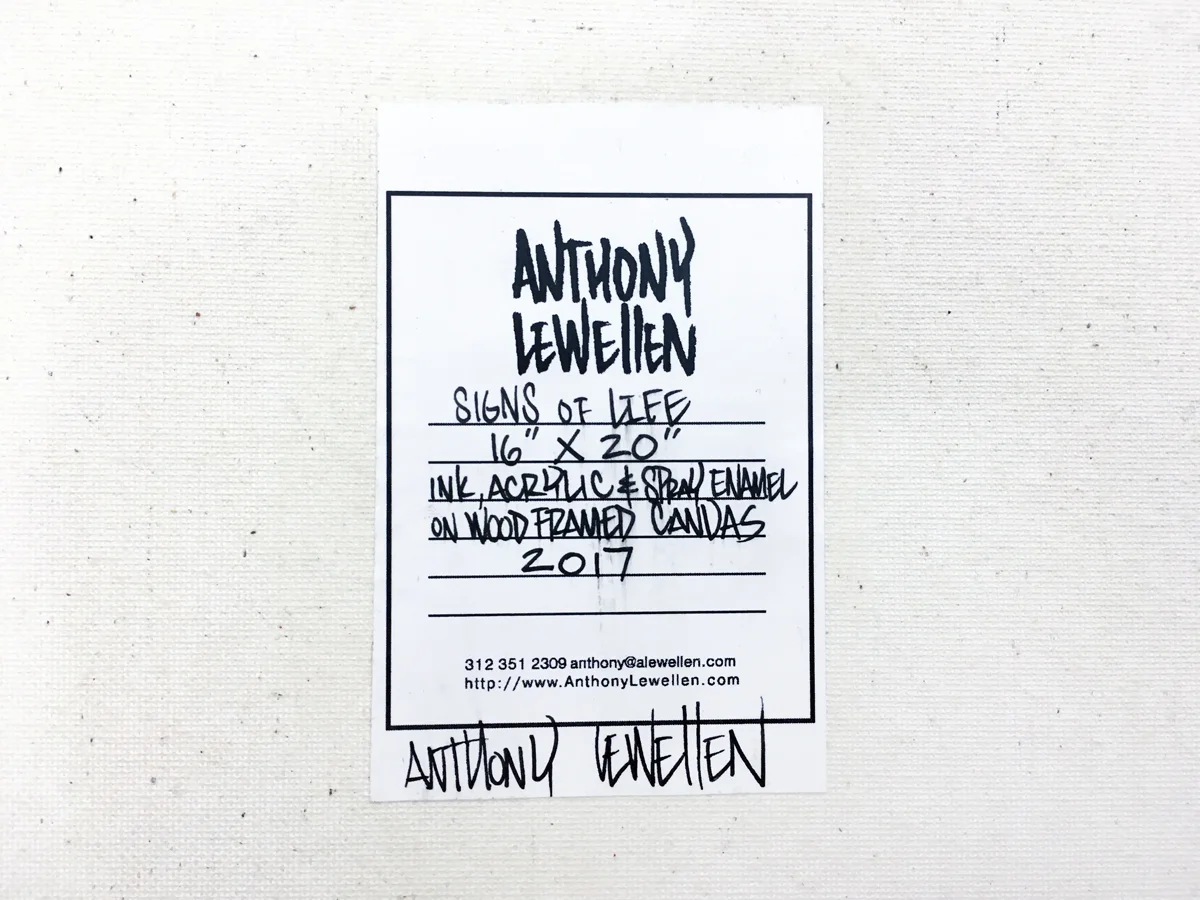 ANTHONY
LEWELLEN
SIGNS OF LIFE
16" X 20"
INK, ACRYLIC & SPRAY ENAMEL
ON WOOD FRAMED CANVAS
2017
312 351 2309 anthony@alewellen.com
http://www.AnthonyLewellen.com
ANTHONY LEWELLEN